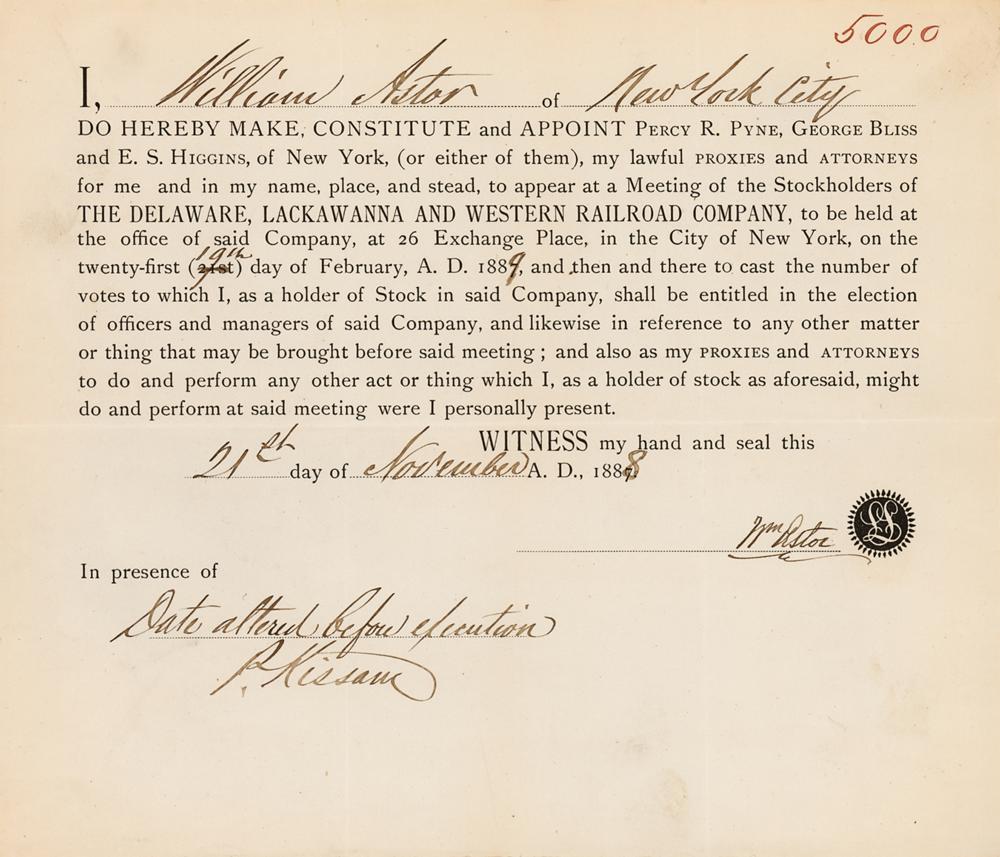 5000
I, William Astor of New York City
DO HEREBY MAKE, CONSTITUTE and APPOINT PERCY R. PYNE, GEORGE BLISS
and E. S. HIGGINS, of New York, (or either of them), my lawful PROXIES and ATTORNEYS
for me and in my name, place, and stead, to appear at a Meeting of the Stockholders of
THE DELAWARE, LACKAWANNA AND WESTERN RAILROAD COMPANY, to be held at
the office of said Company, at 26 Exchange Place, in the City of New York, on the
19th
twenty-first (21st) day of February, A. D. 1889, and then and there to cast the number of
votes to which I, as a holder of Stock in said Company, shall be entitled in the election
of officers and managers of said Company, and likewise in reference to any other matter
or thing that may be brought before said meeting; and also as my PROXIES and ATTORNEYS
to do and perform any other act or thing which I, as a holder of stock as aforesaid, might
do and perform at said meeting were I personally present.
WITNESS my hand and seal this
21st day of November A. D., 1888
Wm Astor LS
In presence of
Date altered before execution
P. Kissam